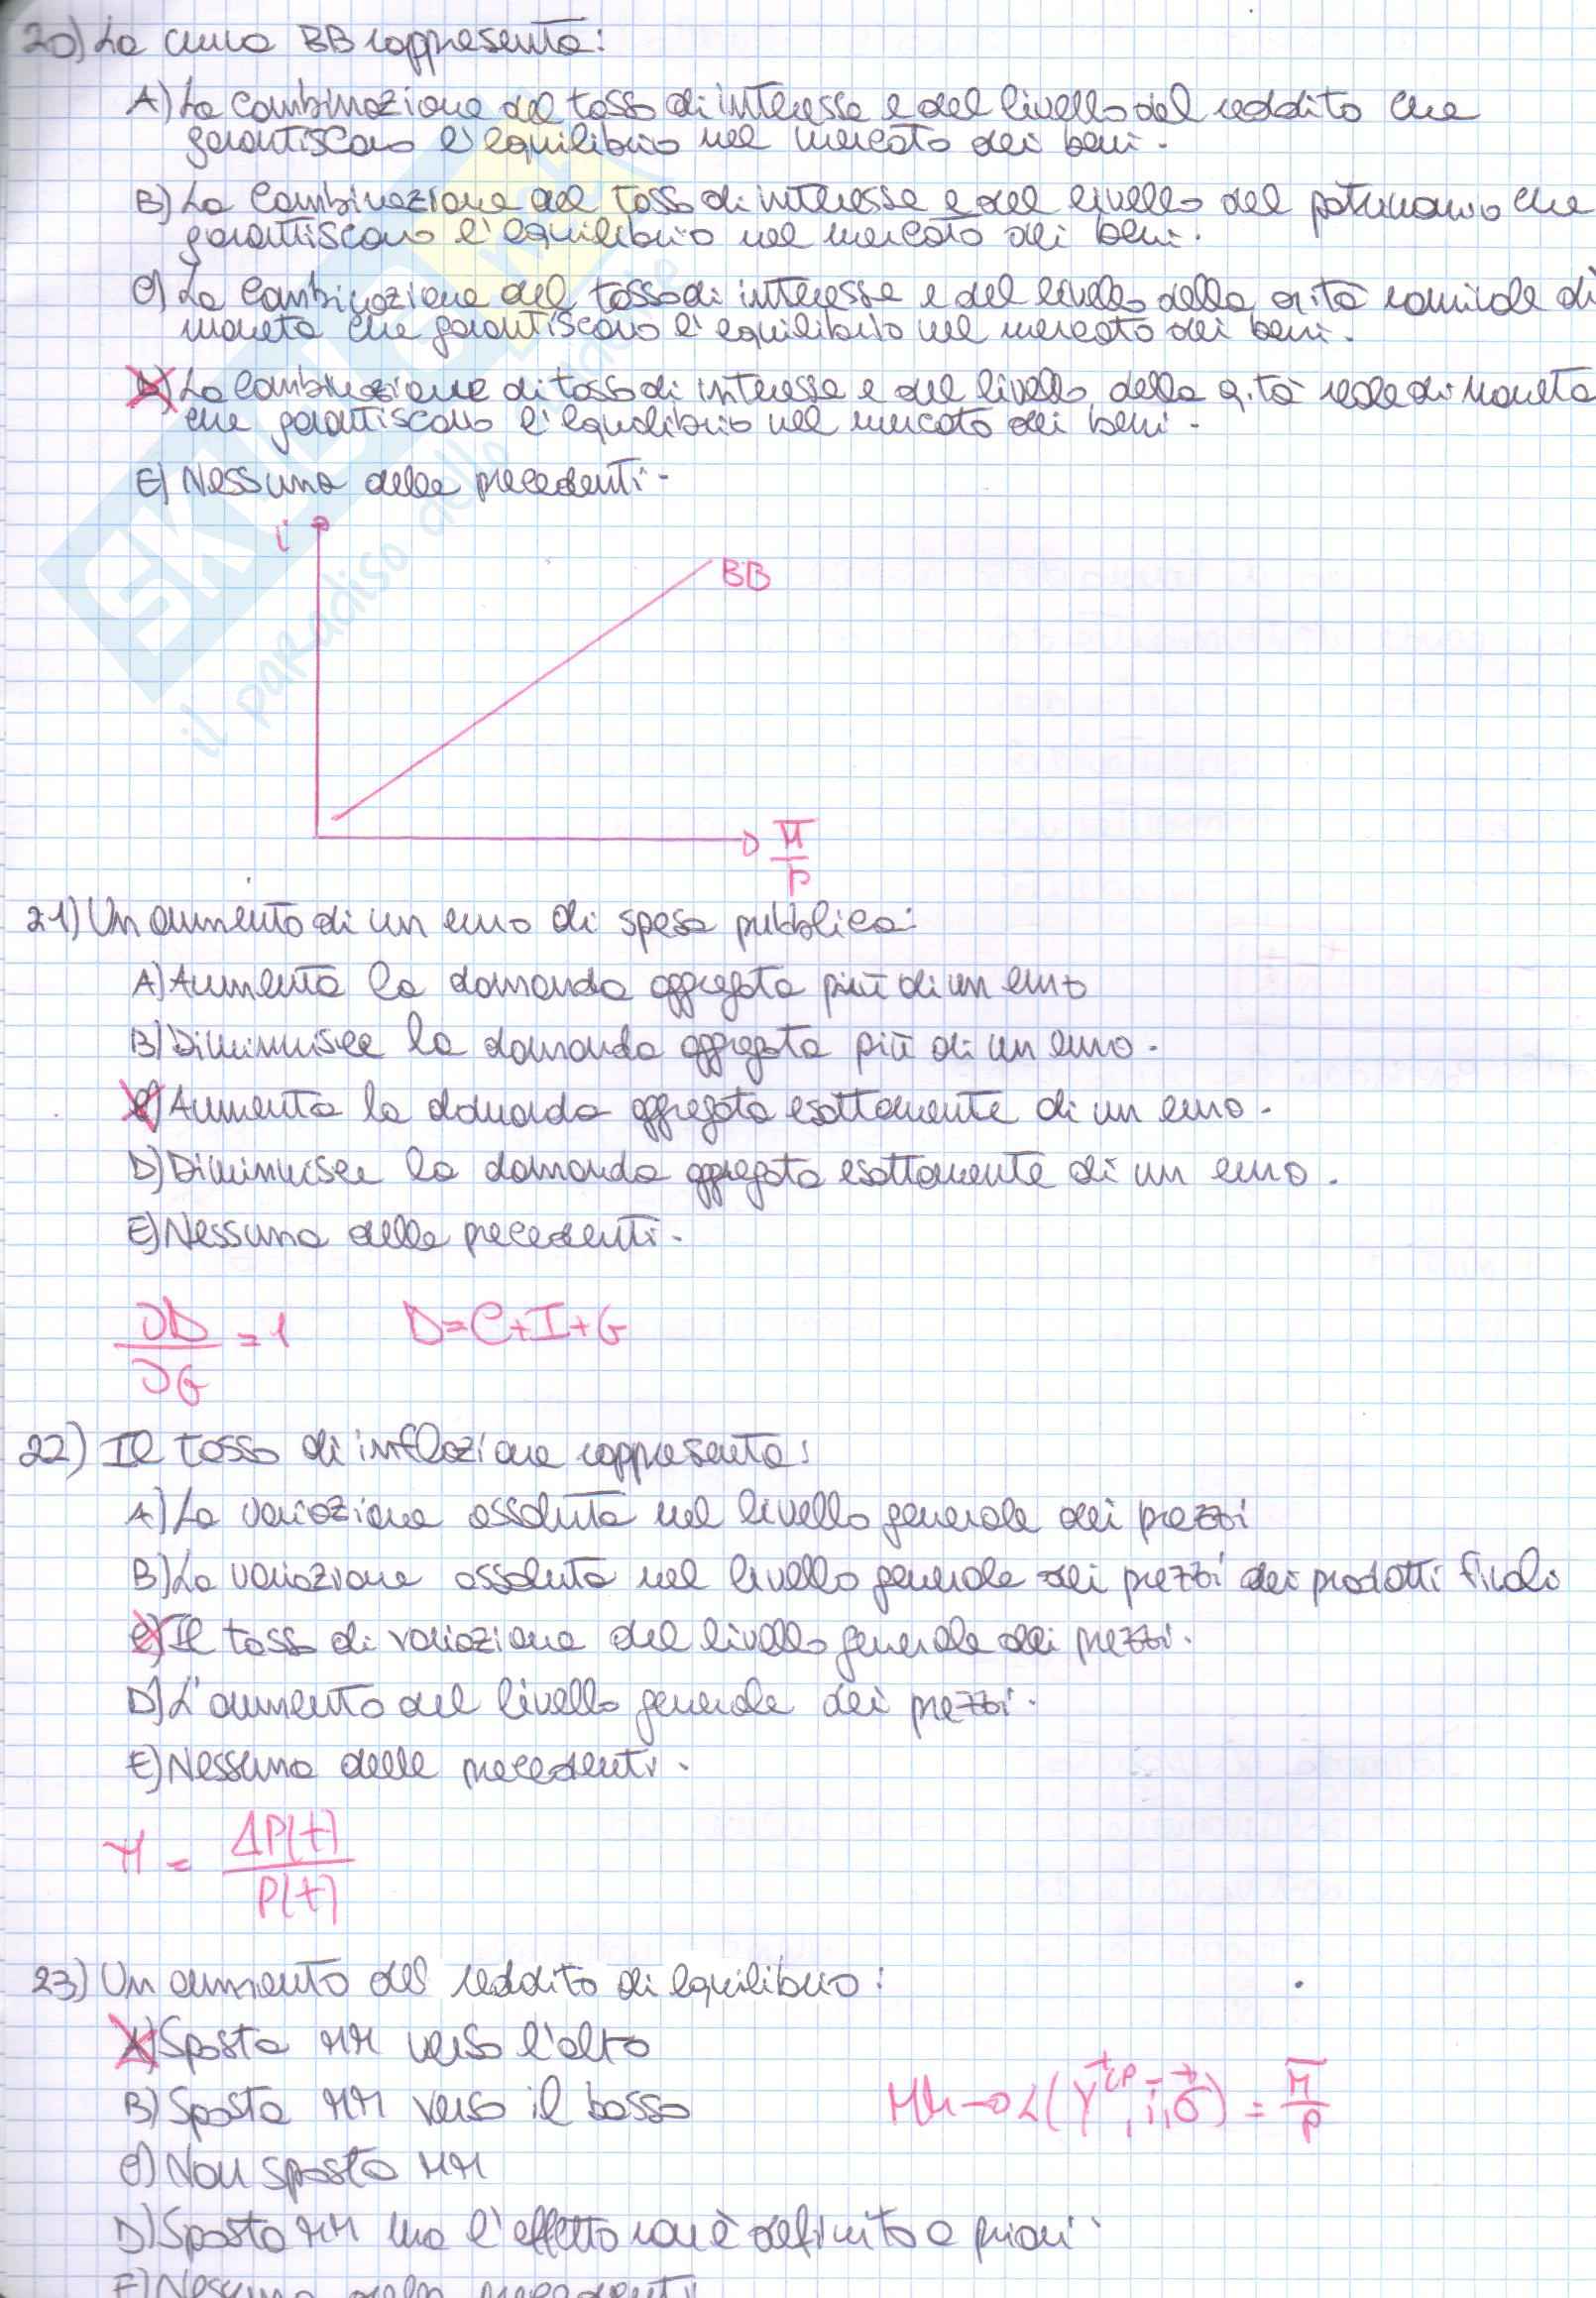 20) La curva BB rappresenta:
A) La combinazione del tasso di interesse e del livello del reddito che
garantiscano l'equilibrio nel mercato dei beni.
B) La combinazione del tasso di interesse e del livello del patrimonio che
garantiscano l'equilibrio nel mercato dei beni.
C) La combinazione del tasso di interesse e del livello della q.ità nominale di
moneta che garantiscano l'equilibrio nel mercato dei beni.
D) La combinazione di tasso di interesse e del livello della q.ità reale di moneta
che garantiscano l'equilibrio nel mercato dei beni.
E) Nessuna delle precedenti.
i
BB
M̅/P
21) Un aumento di un euro di spesa pubblica:
A) Aumenta la domanda aggregata più di un euro
B) Diminuisce la domanda aggregata più di un euro.
C) Aumenta la domanda aggregata esattamente di un euro.
D) Diminuisce la domanda aggregata esattamente di un euro.
E) Nessuna delle precedenti.
∂D/∂G = 1 D=C+I+G
22) Il tasso di inflazione rappresenta:
A) La variazione assoluta nel livello generale dei prezzi
B) La variazione assoluta nel livello generale dei prezzi dei prodotti finali
C) Il tasso di variazione del livello generale dei prezzi.
D) L'aumento del livello generale dei prezzi.
E) Nessuna delle precedenti.
= ΔP(t)/P(t)
23) Un aumento del reddito di equilibrio:
A) Sposta MM verso l'alto
B) Sposta MM verso il basso
C) Non sposta MM
D) Sposta MM ma l'effetto non è definito a priori
E) Nessuna delle precedenti
il paradiso dello